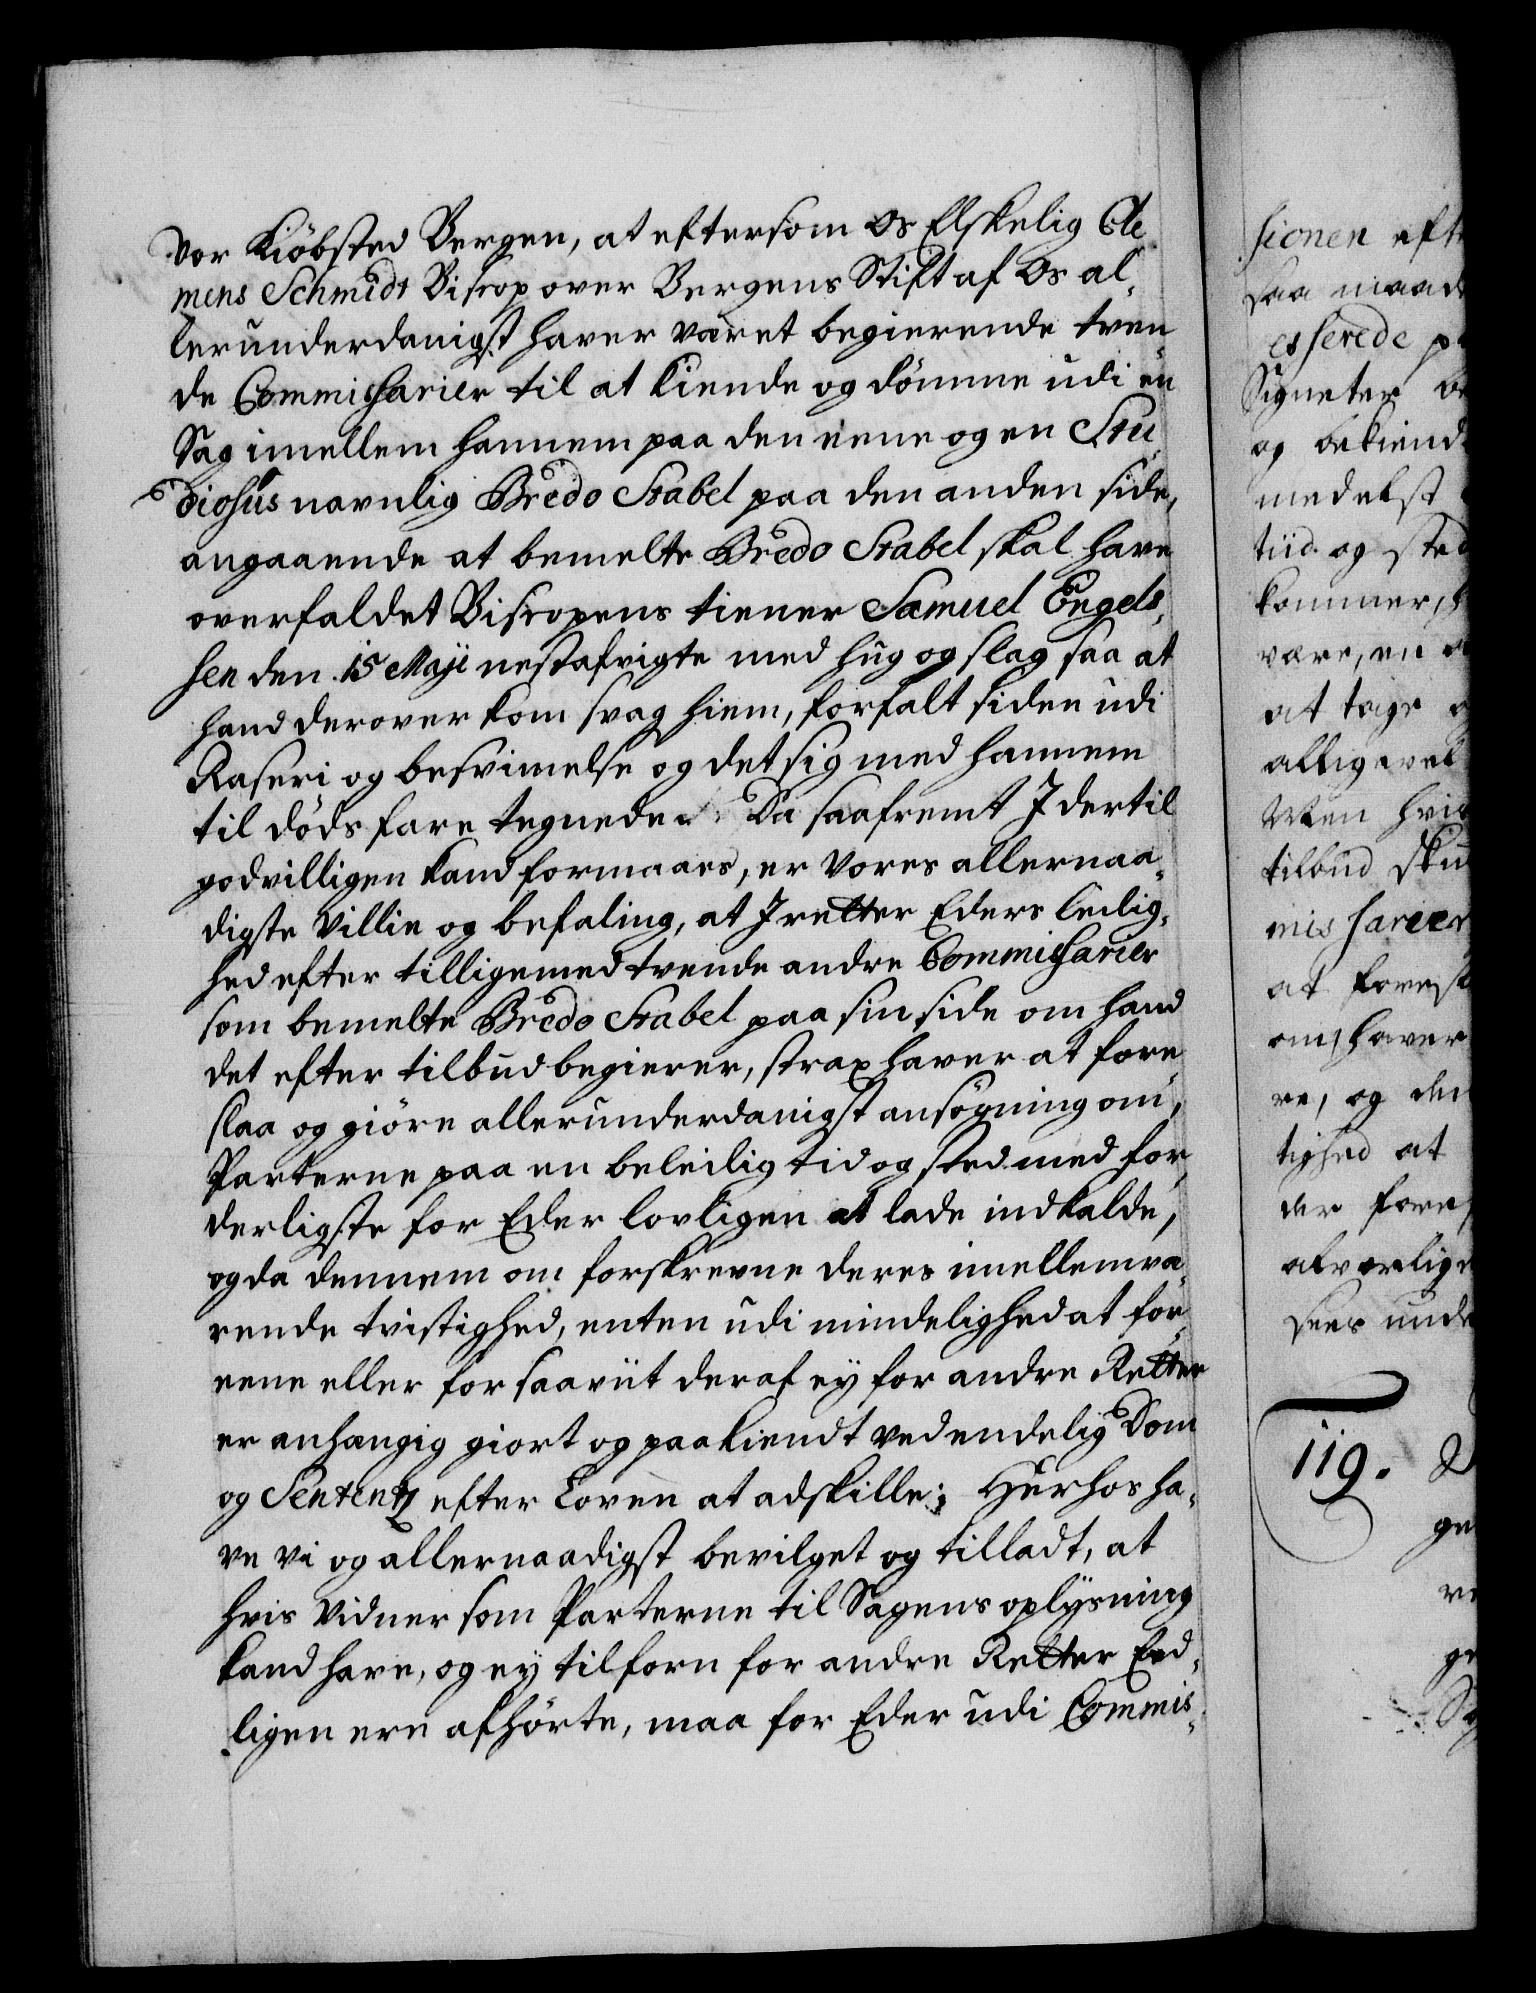 vor Kiöbsted Bergen, at eftersom Os Elskelig Cle
mens Schmidt Biscop over Bergens Stift af Os al-
lerunderdanigst haver været begierende tven
de Commissarier til at kiende og dömme udi en
Sag imellem hannem paa den eene og en Stu
diosus navnlig Bredo Stabel paa den anden side,
angaaende at bemelte Bredo Stabel skal have
overfaldet Biscopens tiener Samuel Engels-
sen den 15 Maji nestafvigte med hug og slag saa at
hand derover kom svag hiem, forfalt siden udi
Raseri og besvimelse og det sig med hannem
til döds fare tegnede. Da saafremt I dertil
godvilligen kand formaaes, er vores allernaa-
digste Villie og befaling, at I retter Eders leilig-
hed efter tilligemed tvende andre Commissarier
som bemelte Bredo Stabel paa sin side om hand
det efter tilbud begierer, strax haver at fore
slaa og giöre allerunderdanigst ansögning om,
Parterne paa en beleilig tid og sted med for-
derligste for Eder lovligen at lade indkalde,
og da dennem om forskrevne deres imellemvæ-
rende tvistighed, enten udi mindelighed at for-
eene eller for saaviit deraf ey for andre Retter
er anhængig giort og paakiendt ved endelig Dom
og Sententz efter Loven at adskille; Herhos ha-
ve vi og allernaadigst bevilget og tilladt, at
hvis Vidner som Parterne til Sagens oplysning
kand have, og ey tilforn for andre Retter Eed-
ligen ere afhörte, maa for Eder udi Commis-
sionen eft
saa maade
esserede p
Signeter
og bekiend
medelst
tiid og sted
kommer, h
være, en
at tage
alligevel
Men hvis
tilbud sku
missarier
at forest
om, haver
re, og den
tighed at
der fore
alvorlig
sees unde
119.
ge
ve
ge